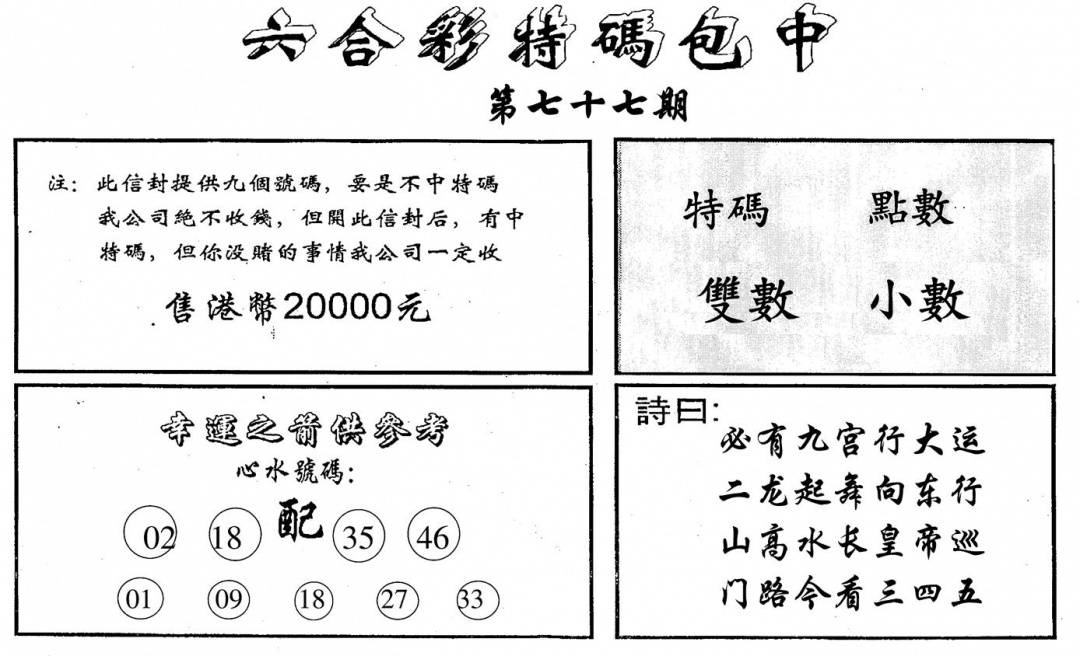 六合彩特碼包中
第七十七期
注：此信封提供九個號碼，要是不中特碼
我公司絶不收錢，但開此信封后，有中
特碼，但你没賭的事情我公司一定收
售港幣20000元
特碼 點數
雙數 小數
幸運之箭供參考
心水號碼：
02 18 配 35 46
01 09 18 27 33
詩曰：
必有九宫行大运
二龙起舞向东行
山高水长皇帝巡
门路今看三四五